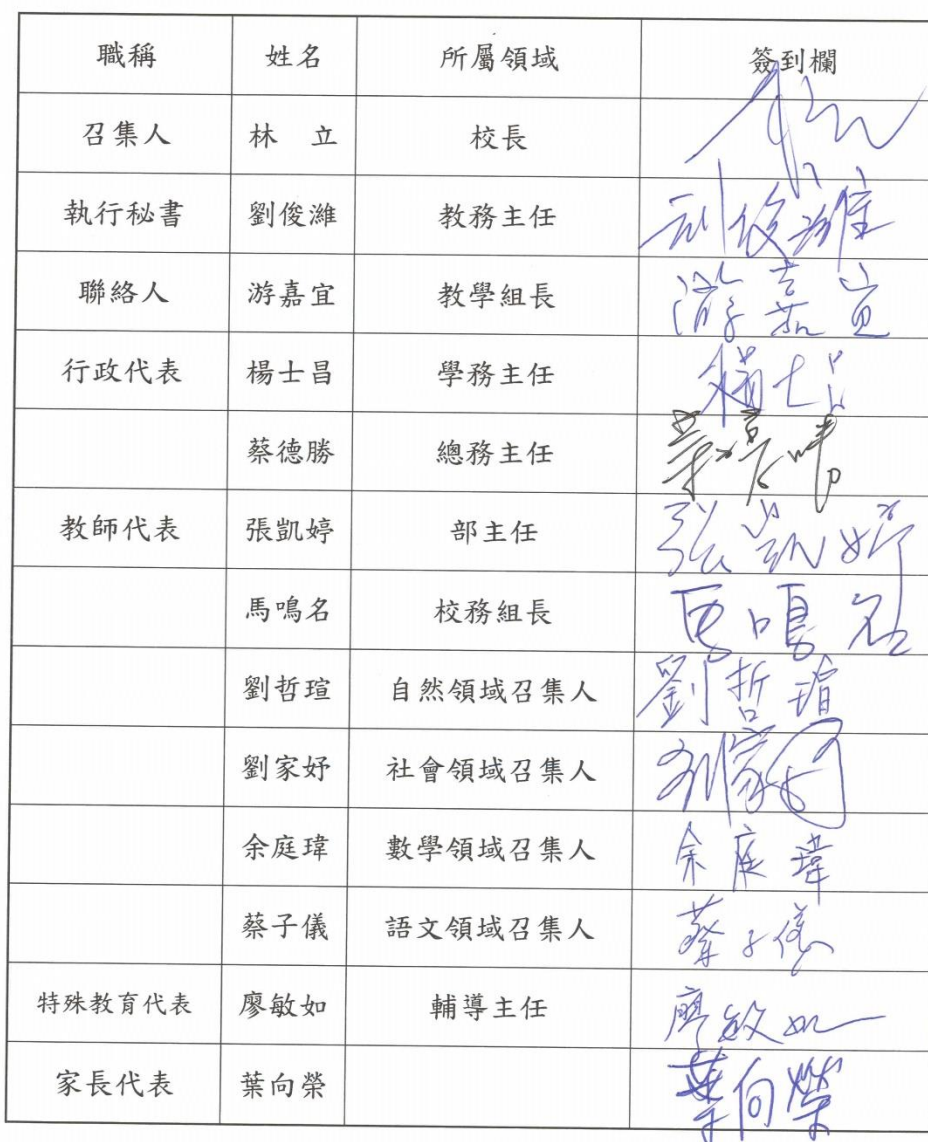 職稱 姓名 所屬領域 簽到欄
召集人 林 立 校長
執行秘書 劉俊濰 教務主任 劉俊濰
聯絡人 游嘉宜 教學組長 游嘉宜
行政代表 楊士昌 學務主任 楊士昌
蔡德勝 總務主任 蔡德勝
教師代表 張凱婷 部主任 張凱婷
馬鳴名 校務組長 馬鳴名
劉哲瑄 自然領域召集人 劉哲瑄
劉家妤 社會領域召集人 劉家妤
余庭瑋 數學領域召集人 余庭瑋
蔡子儀 語文領域召集人 蔡子儀
特殊教育代表 廖敏如 輔導主任 廖敏如
家長代表 葉向榮 葉向榮